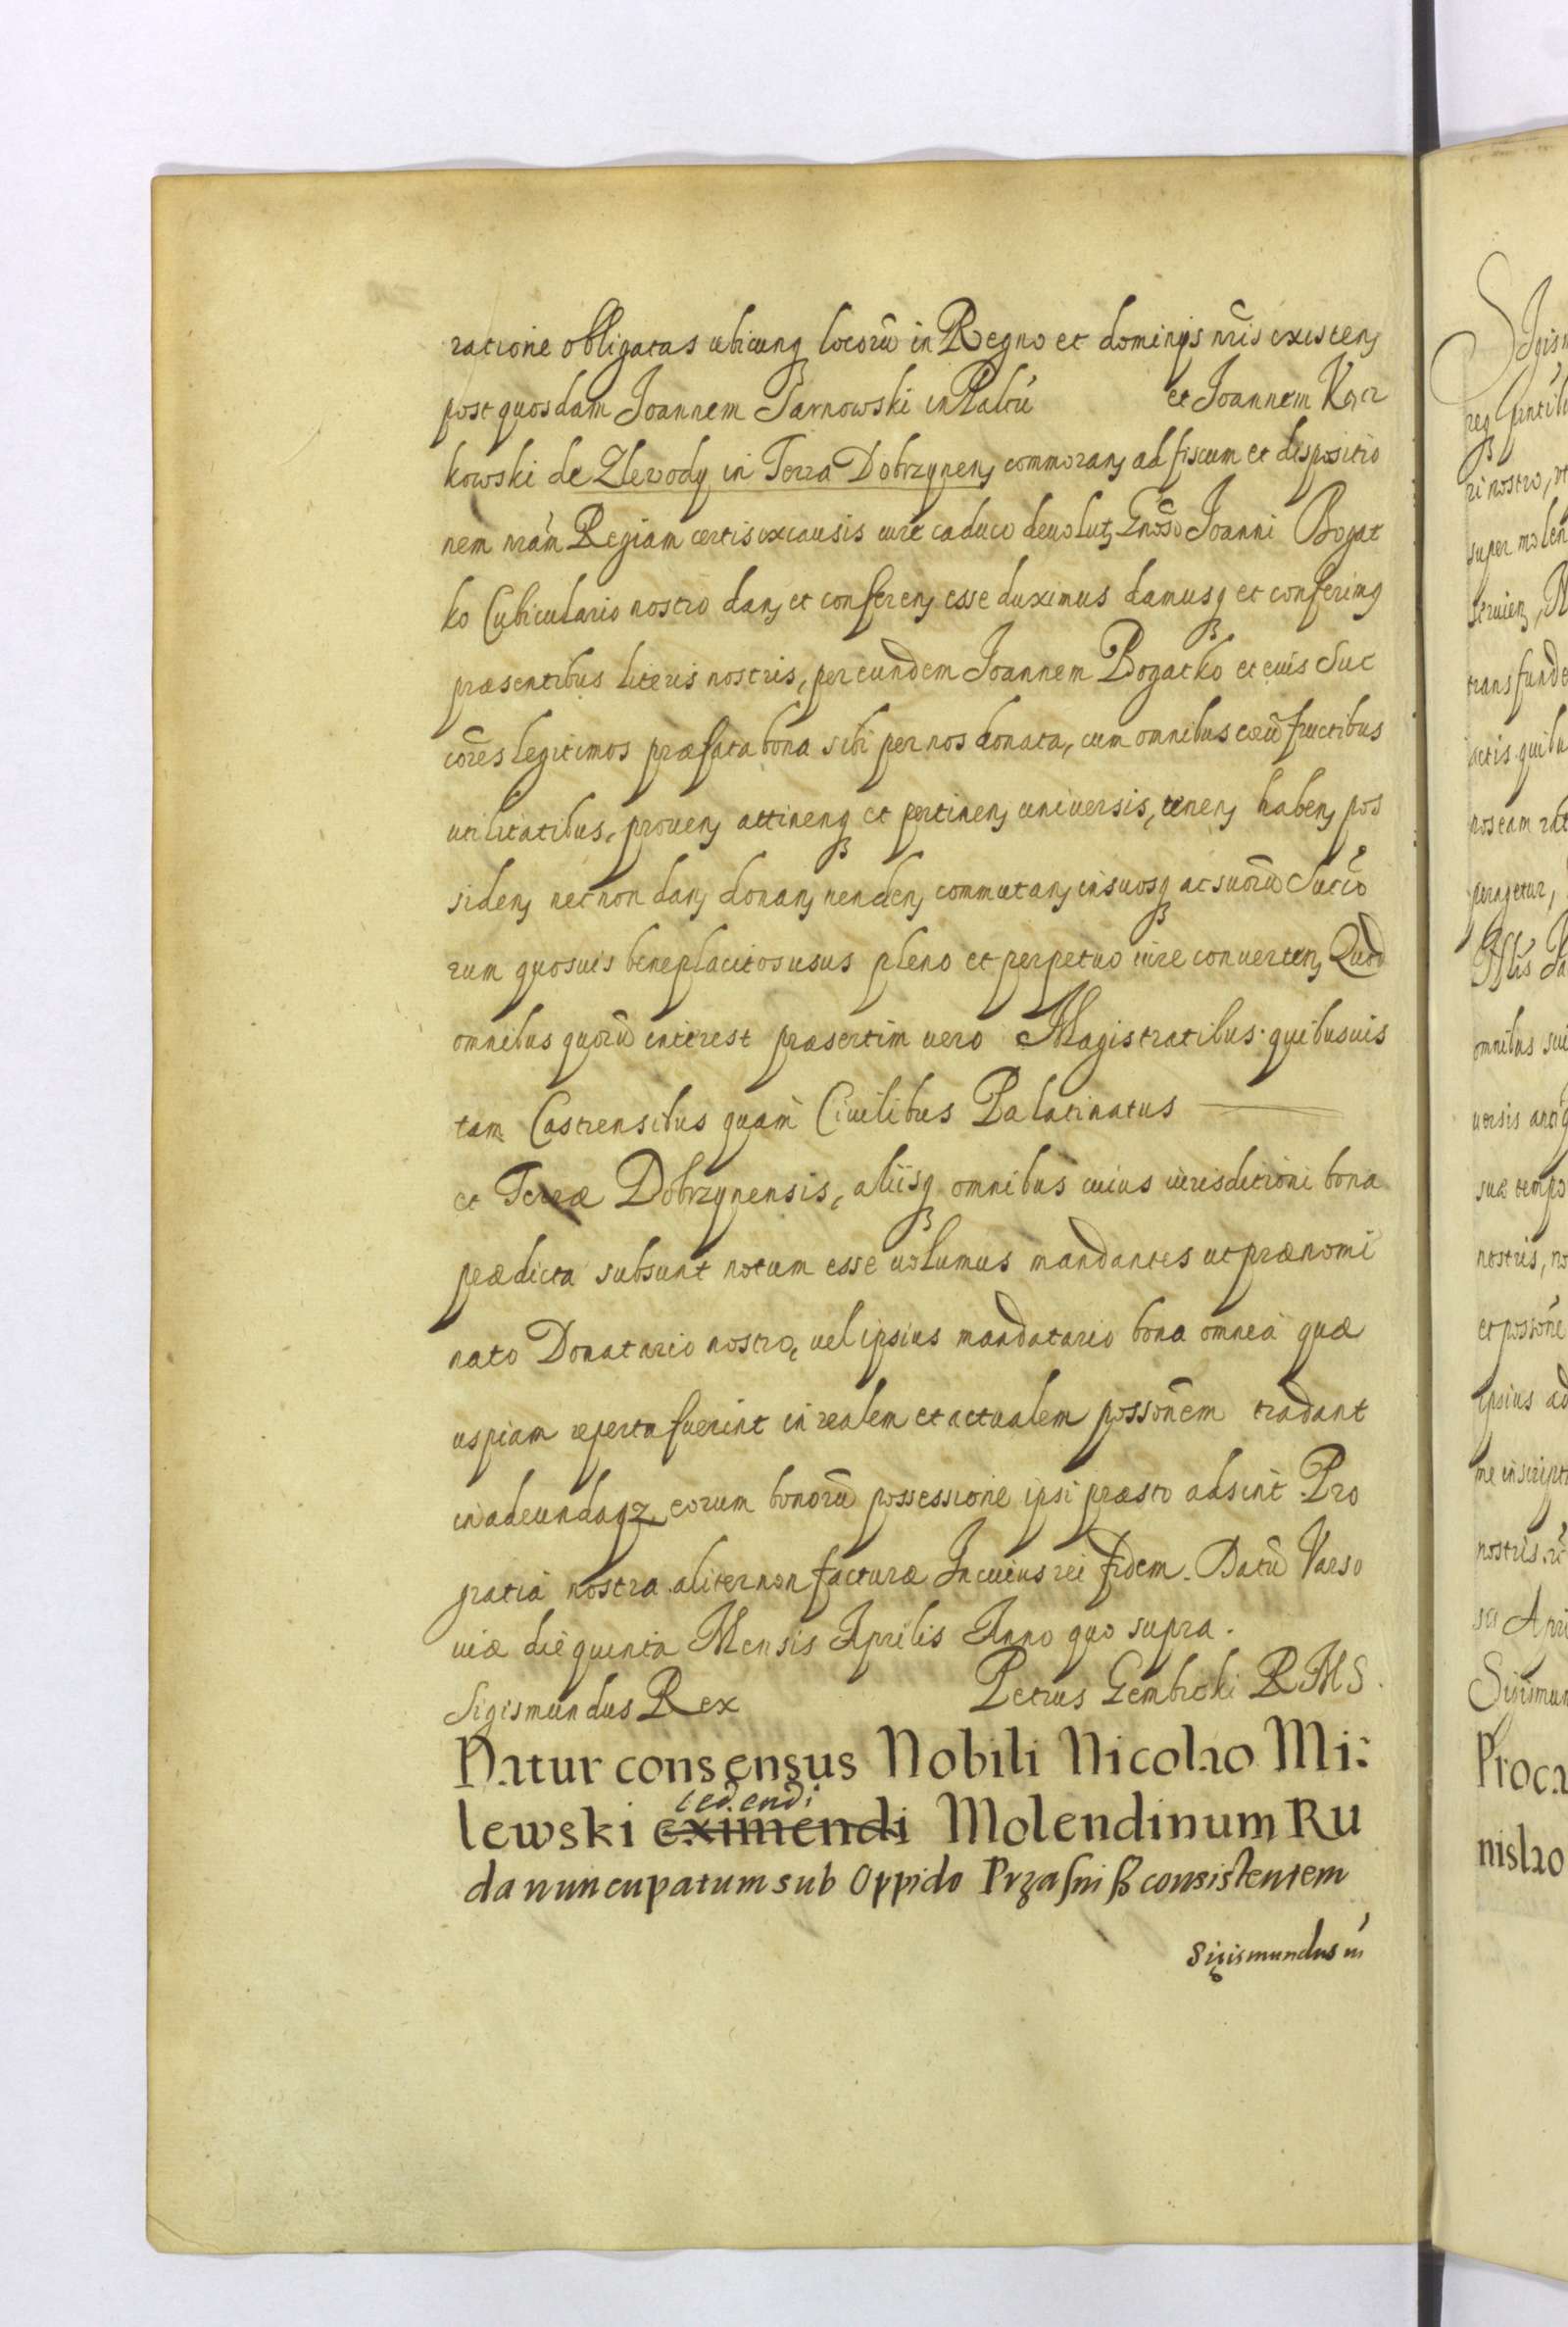 ratione obligatas ubicunq locorū in Regno et dominijs nr̄is existenꝫ
post quosdam Joannem Tarnowski in Palt̄u et Joannem Kar
kowski de Zlewody in Terra Dobrzynenꝫ commoranꝫ ad fiscum et dispositio
nem nrām Regiam certis ex causis iure caduco deuolutꝫ Gnōso Joanni Bogat
ko Cubiculario nostro danꝫ et conferenꝫ esse duximus damusq et conferimq
præsentibus literis nostris, per eundem Joannem Bogatko et eius Suc
cōres legitimos præfata bona sibi per nos donata, cum omnibus eorū fructibus
utilitatibus, prouenꝫ attinenq et pertinenꝫ uniuersis, tenenꝫ habenꝫ pos
sidenꝫ necnon danꝫ donanꝫ uendenꝫ commutanꝫ in suosq ac suorū Succō
rum quosuis beneplacitos usus pleno et perpetuo iure conuertenꝫ Quod
omnibus quorū interest præsertim uero Magistratibus quibusuis
tam Castrensibus quam Ciuilibus Palatinatus
et Terræ Dobrzynensis, aliisq omnibus cuius iurisdictioni bona
prædicta subsunt notum esse uolumus mandantes ut prænomi
nato Donatario nostro, uel ipsius mandatario bona omnia quæ
uspiam reperta fuerint in realem et actualem possōnem tradant
in adeundaqꝫ eorum bonorū possessione ipsi præsto adsint Pro
gratia nostra aliter non facturæ In cuius rei fidem. Datū Varso
uiæ die quinta Mensis Aprilis Anno quo supra.
Sigismundus Rex Petrus Gembicki R M S.
Datur consensus Nobili Nicolao Mi:
cedendi
lewski eximendi Molendinum Ru
da nuncupatum sub Oppido Przasniß consistentem
Sigismundus iii